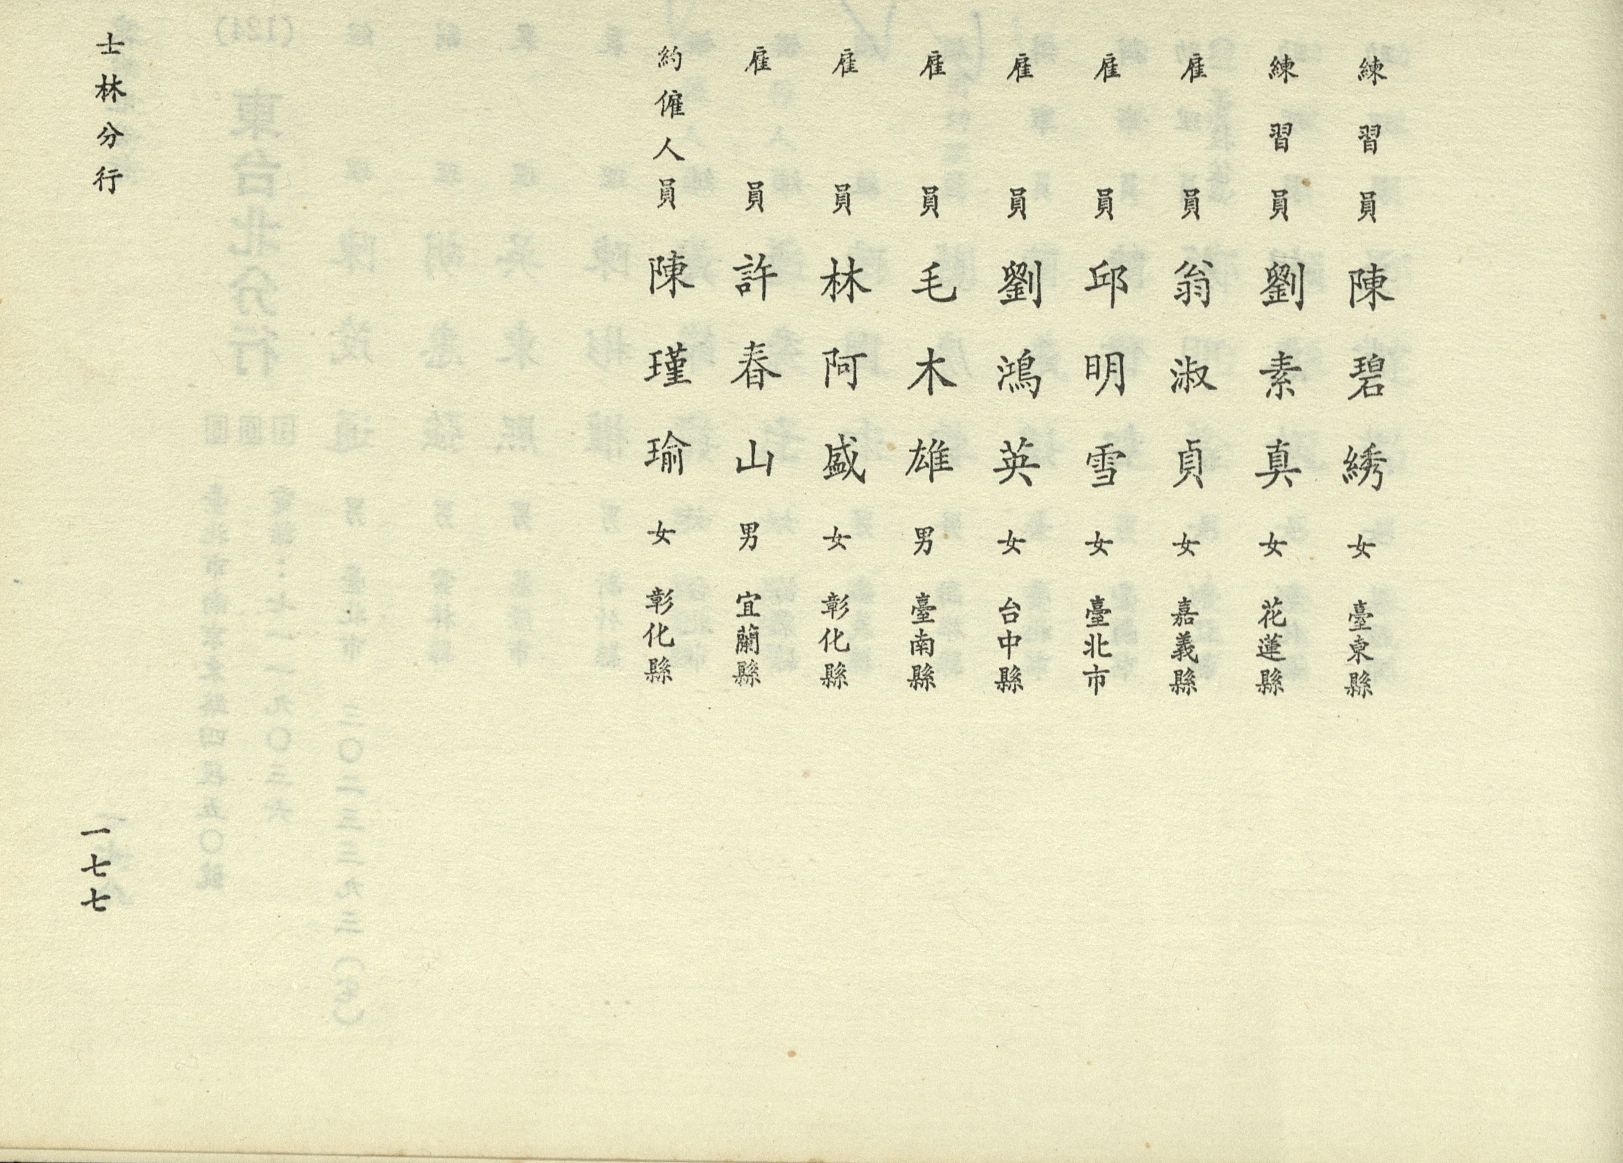 練習員 陳碧綉 女 臺東縣
練習員 劉素真 女 花蓮縣
雇員 翁淑貞 女 嘉義縣
雇員 邱明雪 女 臺北市
雇員 劉鴻英 女 台中縣
雇員 毛木雄 男 臺南縣
雇員 林阿盛 女 彰化縣
雇員 許春山 男 宜蘭縣
約僱人員 陳瑾瑜 女 彰化縣
士林分行
一七七